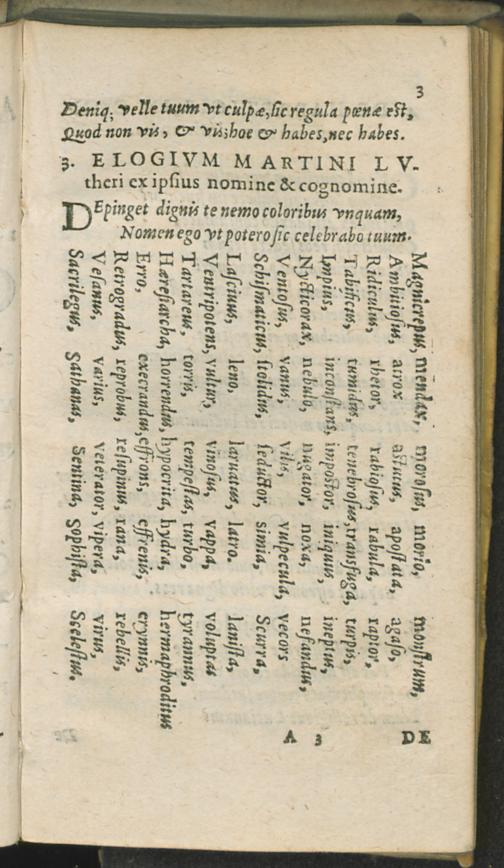 3
Deniq; velle tuum vt culpæ, sic regula pœnæ est,
Quod non vis, & vis; hoc & habes, nec habes.
3. ELOGIVM MARTINI LV-
theri ex ipsius nomine & cognomine.
DEpinget dignis te nemo coloribus vnquam,
Nomen ego vt potero sic celebrabo tuum.
Magnicrepus, mendax, morosus, morio, monstrum,
Ambitiosus, atrox astutus, apostata, agaso,
Ridiculus, rhetor, rabiosus, rabula, raptor,
Tabificus, tumidus, tenebrosus, transfuga, turpis,
Impius, inconstans, impostor, iniquus, ineptus,
Nycticorax, nebulo, nugator, noxa, nefandus,
Ventosus, vanus, vilis, vulpecula, vecors
Schismaticus, stolidus, seductor, simia, Scurra,
Lasciuus, leno, laruatus, latro. lanista,
Ventripotens, vultur, vinosus, vappa, voluptas
Tartareus, torris, tempestas, turbo, tyrannus,
Hæresiarcha, horrendus, hypocrita, hydra, hermaphroditus
Erro, execrandus, effrons, effrenis, erynnis,
Retrogradus, reprobus, resupinus, rana, rebellis,
Vesanus, varius, veterator, vipera, virus,
Sacrilegus, Sathanas, Sentina, Sophista, Scelestus.
A 3 DE